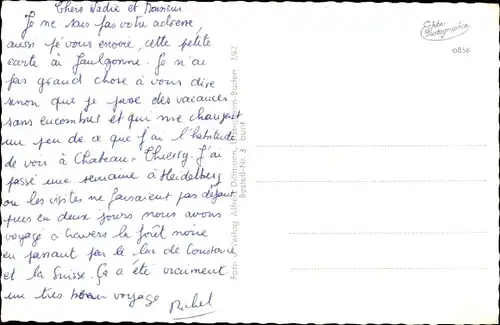 Chers Nadie et Monsieur
Je ne sais pas votre adresse
aussi je vous envoie, cette petite
carte à Jaulgonne. Je n'ai
pas grand chose à vous dire
sinon que je passe des vacances
sans encombres et qui me changent
un peu de ce que j'ai l'habitude
de voir à Chateau-Thierry. J'ai
passé une semaine à Heidelberg
ou les visites ne faisaient pas défaut
puis en deux jours nous avons
voyagé à travers la forêt noire
en passant par le lac de Constance
et la Suisse. Ça a été vraiment
un très beau voyage
Michel
Echte
Photographie
0856
Foto u. Verlag Alfred Dittmann, Baden 3/62
Bestell-Nr. 3 bunt